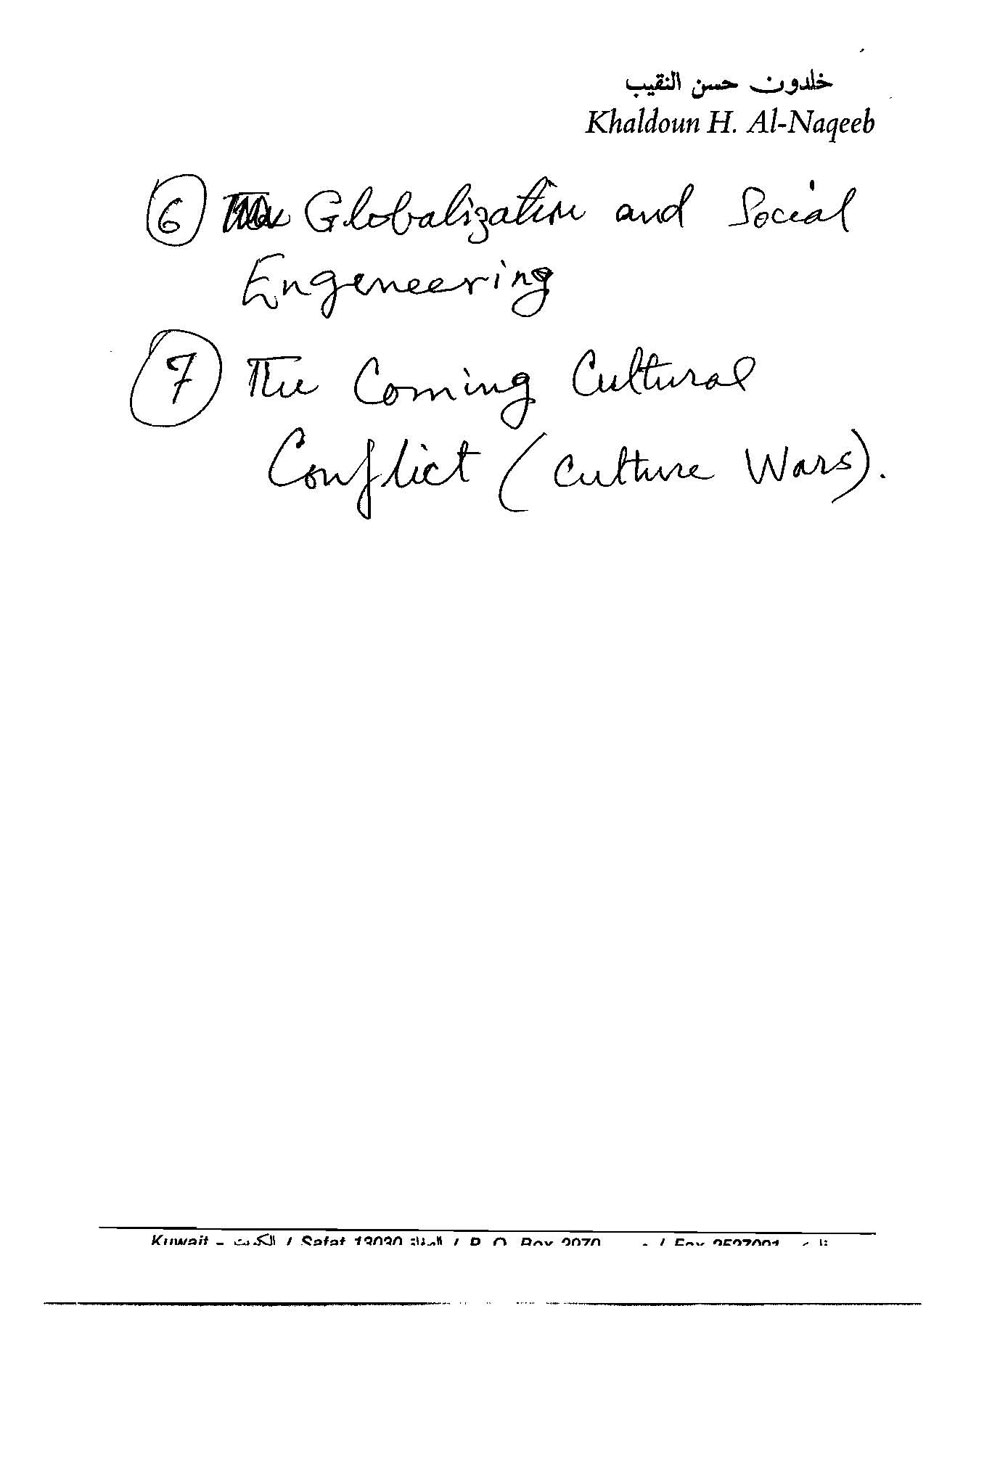 خلدون حسن النقيب
Khaldoun H. Al-Naqeeb
6 Globalization and Social
Engeneering
7 The Coming Cultural
Conflict (Culture Wars).
Kuwait - الكويت / Safat 13030 الصفاة / P. O. Box 2070 / Fax 2527091